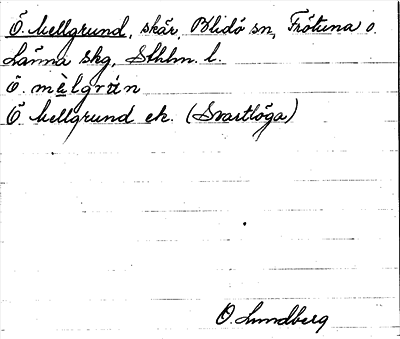 Ö. Mellgrund, skär, Blidö sn, Frötuna o.
Länna skg, Sthlm. l.
ö. mèlgrún
Ö Mellgrund ek. (Svartlöga)
O. Lundberg